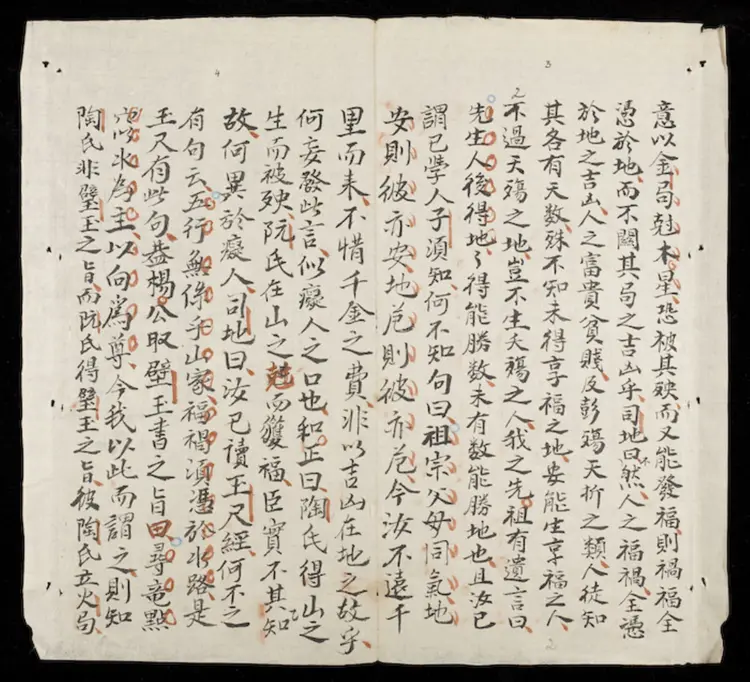 3
意以金局尅木星恐被其殃而又能發福則禍福全
憑於地而不關其局之吉凶乎司地曰不然人之福禍全憑
於地之吉凶人之富貴貧賤及彭殤夭折之類人徒知
其各有天数殊不知未得享福之地安能生享福之人
不過夭殤之地豈不生夭殤之人我之先祖有遺言曰
先生人後得地々得能勝数未有数能勝地也且汝已
謂已學人子須知何不知句曰祖宗父母同氣地
安則彼亦安地危則彼亦危今汝不遠千
2
4
里而来不惜千金之費非以吉凶在地之故乎
何妄發此言似癡人之口也和正曰陶氏得山之
生而被殃阮氏在山之尅而獲福臣實不知其
故何異於癡人司地曰汝已讀玉尺經何不之
有句云五行無係乎山家福禍須憑於水路是
玉尺有此句益楊公取璧玉書之旨曰尋竜點
穴以水為主以向爲尊今我以此而謂之則知
陶氏非璧玉之旨而阮氏得璧玉之旨彼陶氏立火局